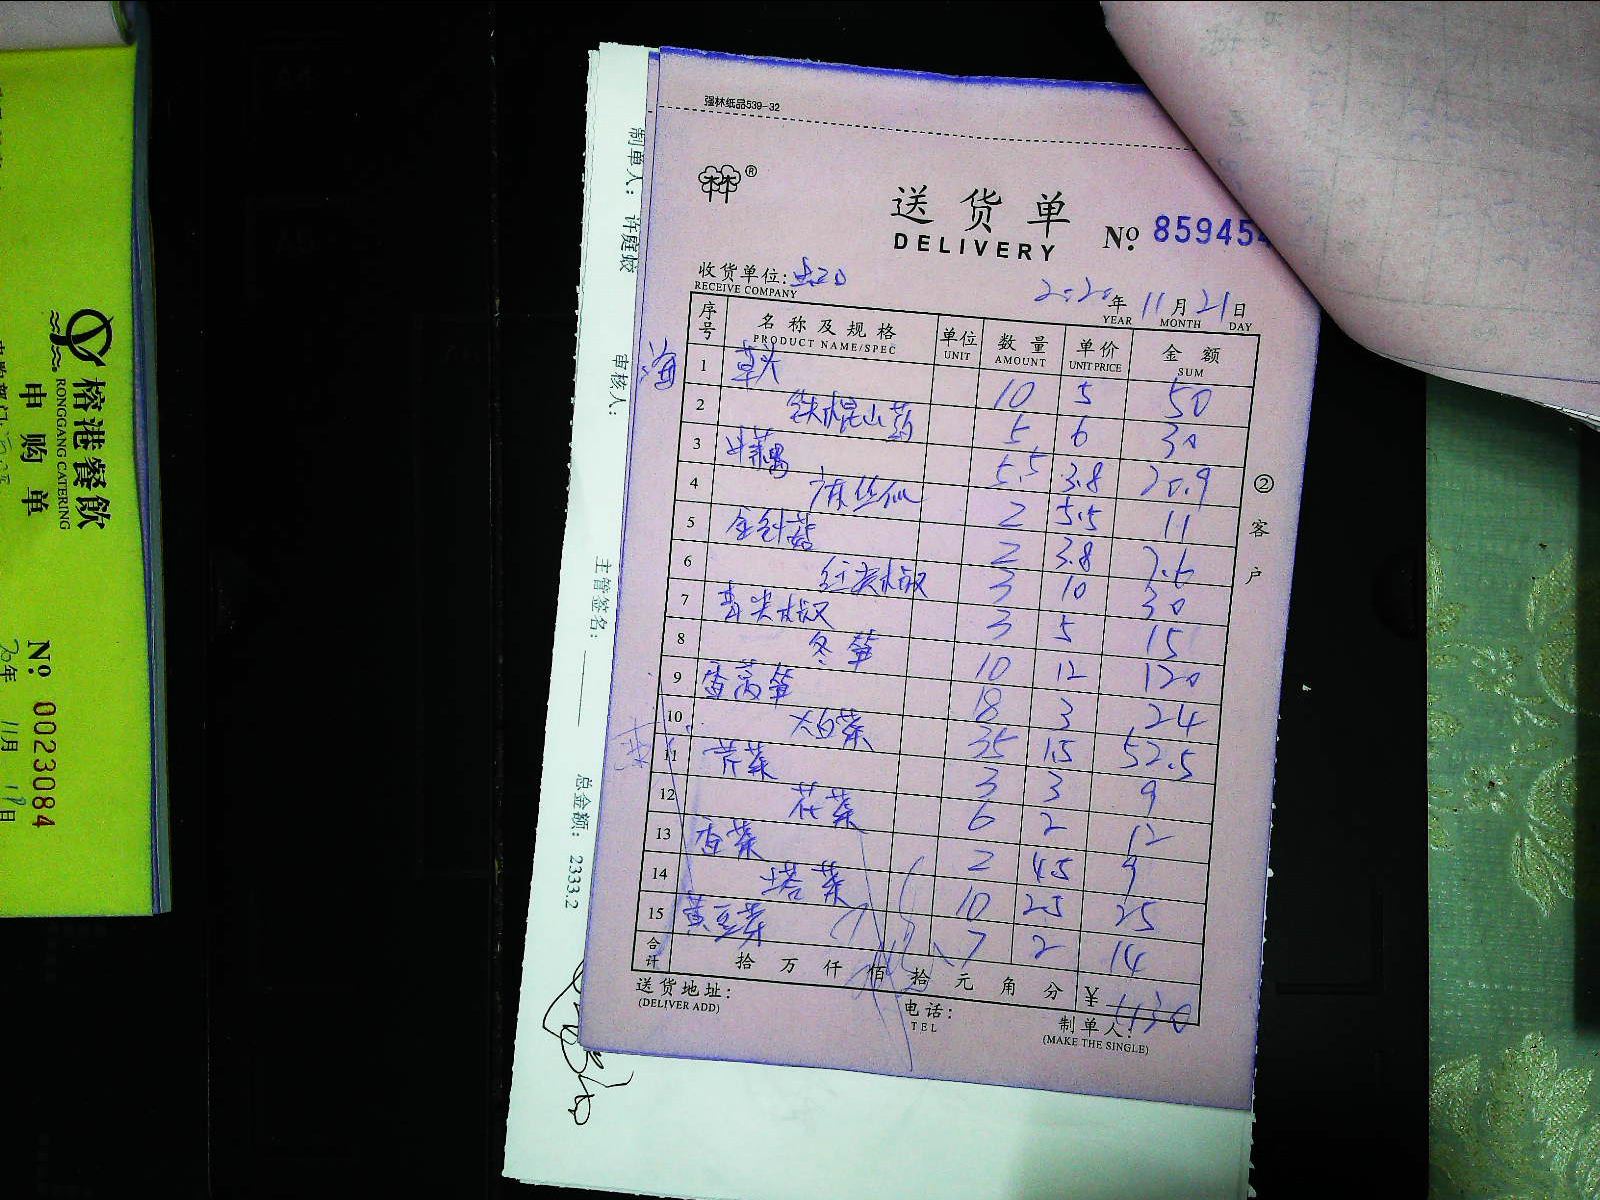 强林纸品539-32
林®
送货单
DELIVERY
№ 859454
收货单位:
RECEIVE COMPANY
2020年 11月 21日
YEAR MONTH DAY
序号 名称及规格 单位 数量 单价 金额
PRODUCT NAME/SPEC UNIT AMOUNT UNIT PRICE SUM
1 草头 10 5 50
2 铁棍山药 5 6 30
3 5.5 3.8 20.9
4 2 5.5 11
5 金针菇 2 3.8 7.6
6 红尖椒 3 10 30
7 青尖椒 3 5 15
8 冬笋 10 12 120
9 香莴笋 18 3 24
10 大白菜 35 1.5 52.5
11 芹菜 3 3 9
12 花菜 6 2 12
13 香菜 2 4.5 9
14 塔菜 10 2.5 25
15 黄豆芽 7 2 14
合计 拾 万 仟 佰 拾 元 角 分 ¥ 1130
送货地址:
(DELIVER ADD)
电话:
TEL
制单人:
(MAKE THE SINGLE)
②客户
海
制单人: 许庭蛟
审核人:
主管签名:
总金额: 2333.2
榕港餐飲
RONGGANG CATERING
申购单
№ 0023084
20年 11月 19日